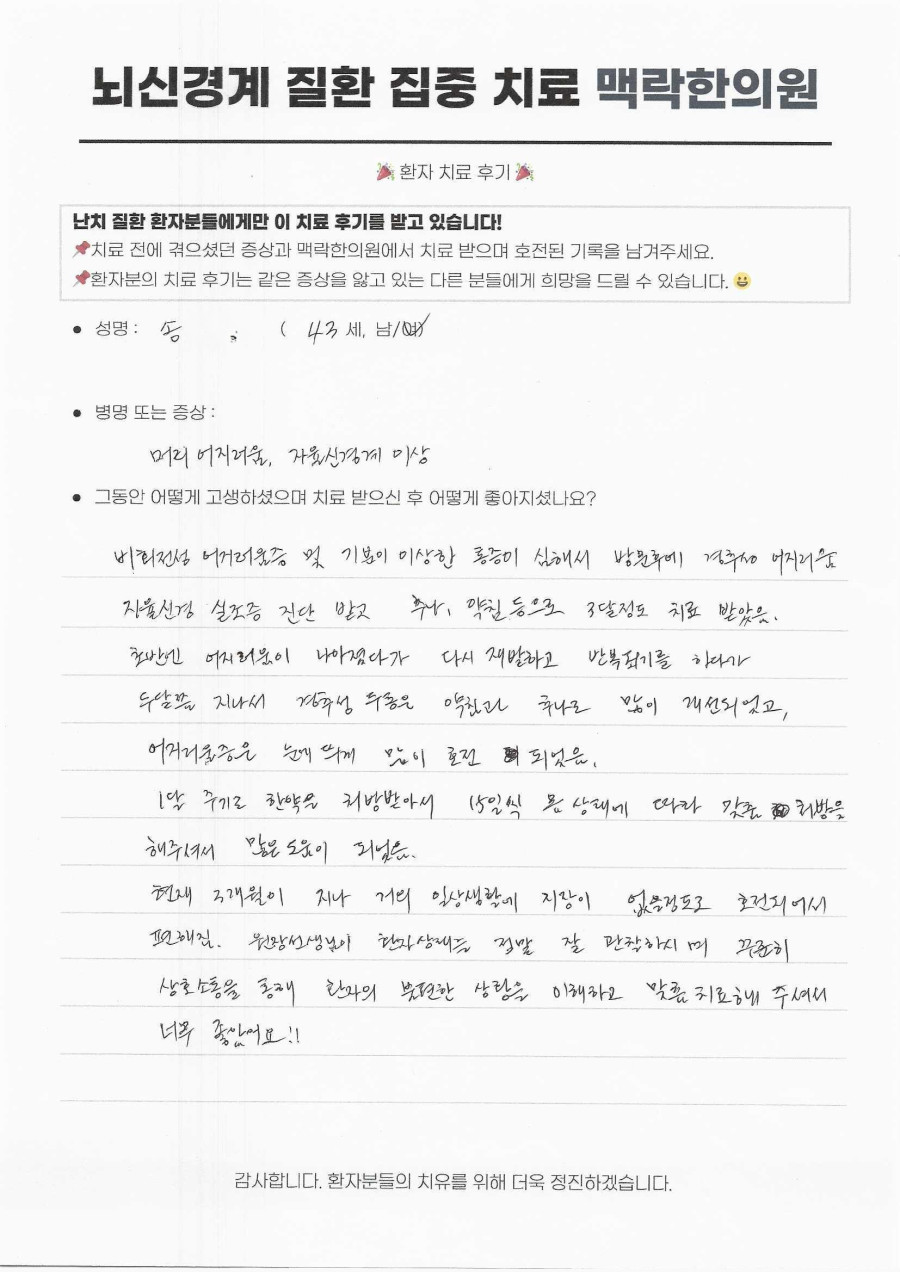 뇌신경계 질환 집중 치료 맥락한의원
🎉 환자 치료 후기 🎉
난치 질환 환자분들에게만 이 치료 후기를 받고 있습니다!
📌치료 전에 겪으셨던 증상과 맥락한의원에서 치료 받으며 호전된 기록을 남겨주세요.
📌환자분의 치료 후기는 같은 증상을 앓고 있는 다른 분들에게 희망을 드릴 수 있습니다. 😀
• 성명 : 송 ( 43 세, 남/여
• 병명 또는 증상 :
머리 어지러움, 자율신경계 이상
• 그동안 어떻게 고생하셨으며 치료 받으신 후 어떻게 좋아지셨나요?
비회전성 어지러움증 및 기분이 이상한 통증이 심해서 방문후에 경추성 어지러움
자율신경 실조증 진단 받고 추나, 약침 등으로 3달정도 치료 받았음.
초반엔 어지러움이 나아졌다가 다시 재발하고 반복되기를 하다가
두달쯤 지나서 경추성 두통은 약침과 추나로 많이 개선되었고,
어지러움증은 눈에 띄게 많이 호전 되었음.
1달 주기로 한약을 처방받아서 15일씩 몸 상태에 따라 맞춤 처방을
해주셔서 많은 도움이 되었음.
현재 3개월이 지나 거의 일상생활에 지장이 없을정도로 호전되어서
편해짐. 원장선생님이 환자상태를 정말 잘 관찰하시며 꾸준히
상호소통을 통해 환자의 불편한 상황을 이해하고 맞춤 치료해 주셔서
너무 좋았어요!!
감사합니다. 환자분들의 치유를 위해 더욱 정진하겠습니다.